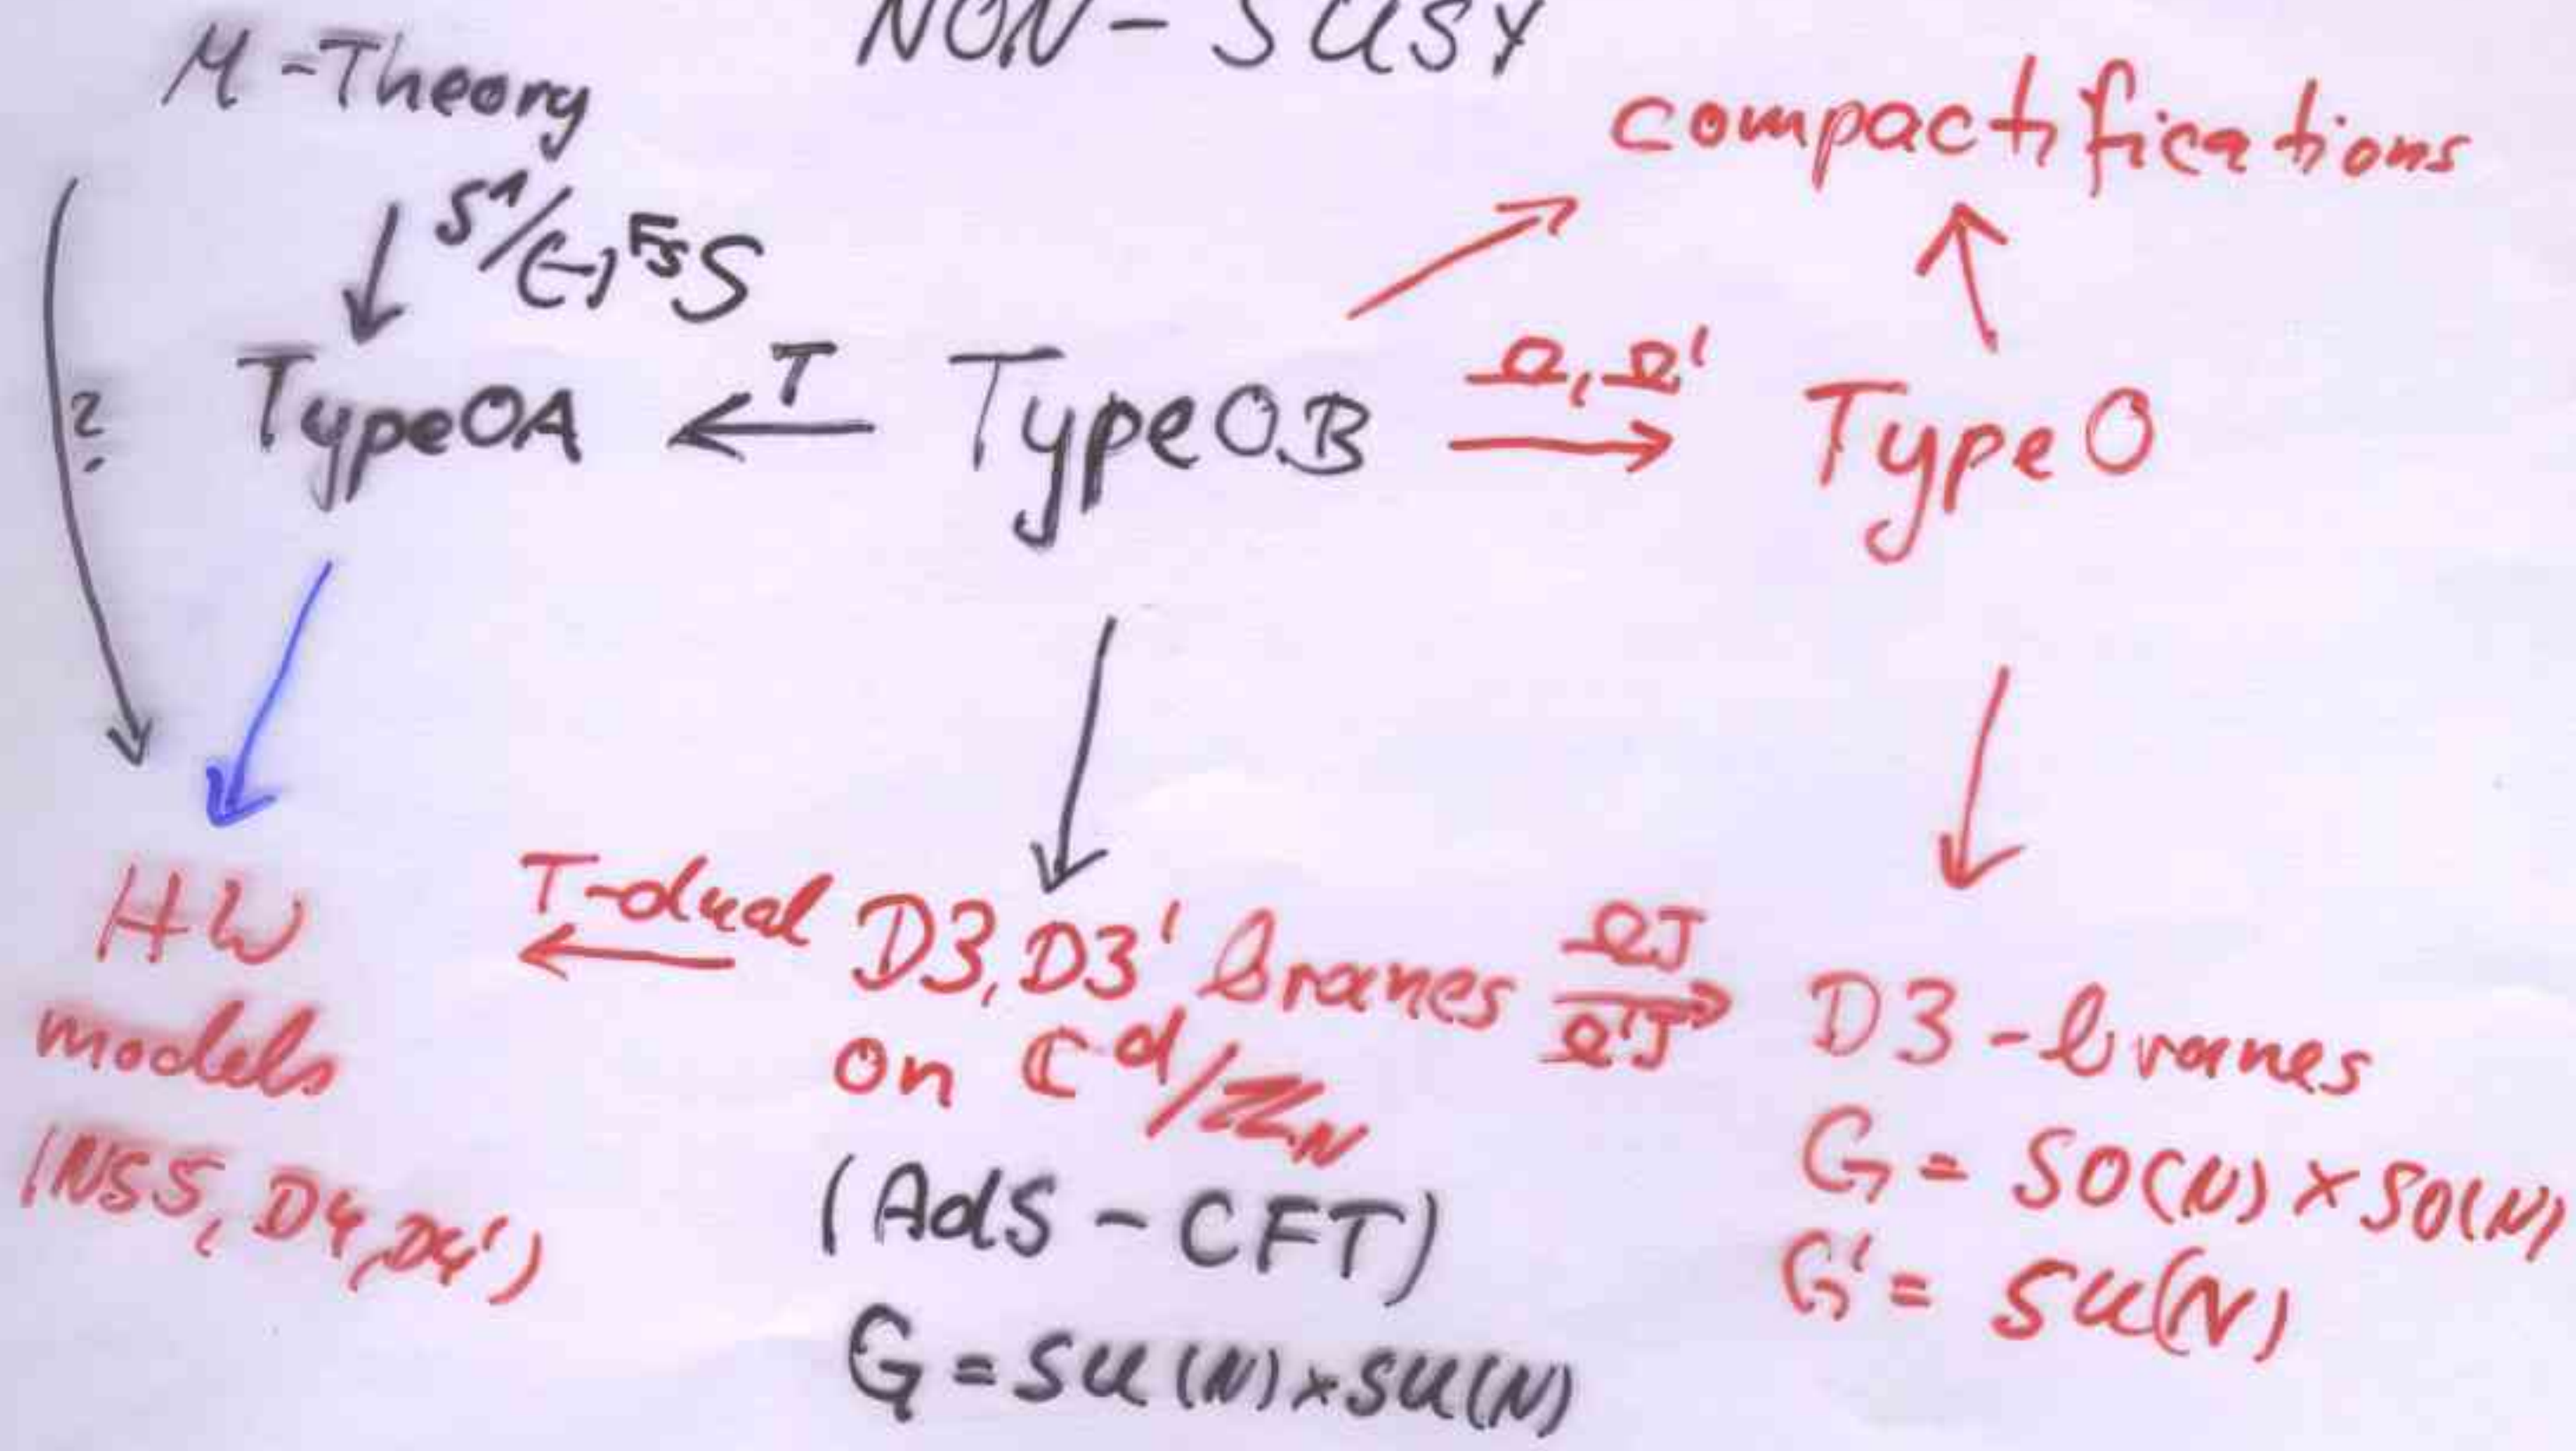 NON - SUSY
M-Theory
compactifications
S¹/(-)^Fs S
?
Type0A
T
Type0B
Ω, Ω'
Type 0
HW
models
(NS5, D4, D4')
T-dual
D3, D3' branes
on ℂ^d/ℤ_N
(AdS - CFT)
G = SU(N) × SU(N)
ΩJ
Ω'J
D3-branes
G = SO(N) × SO(N)
G' = SU(N)